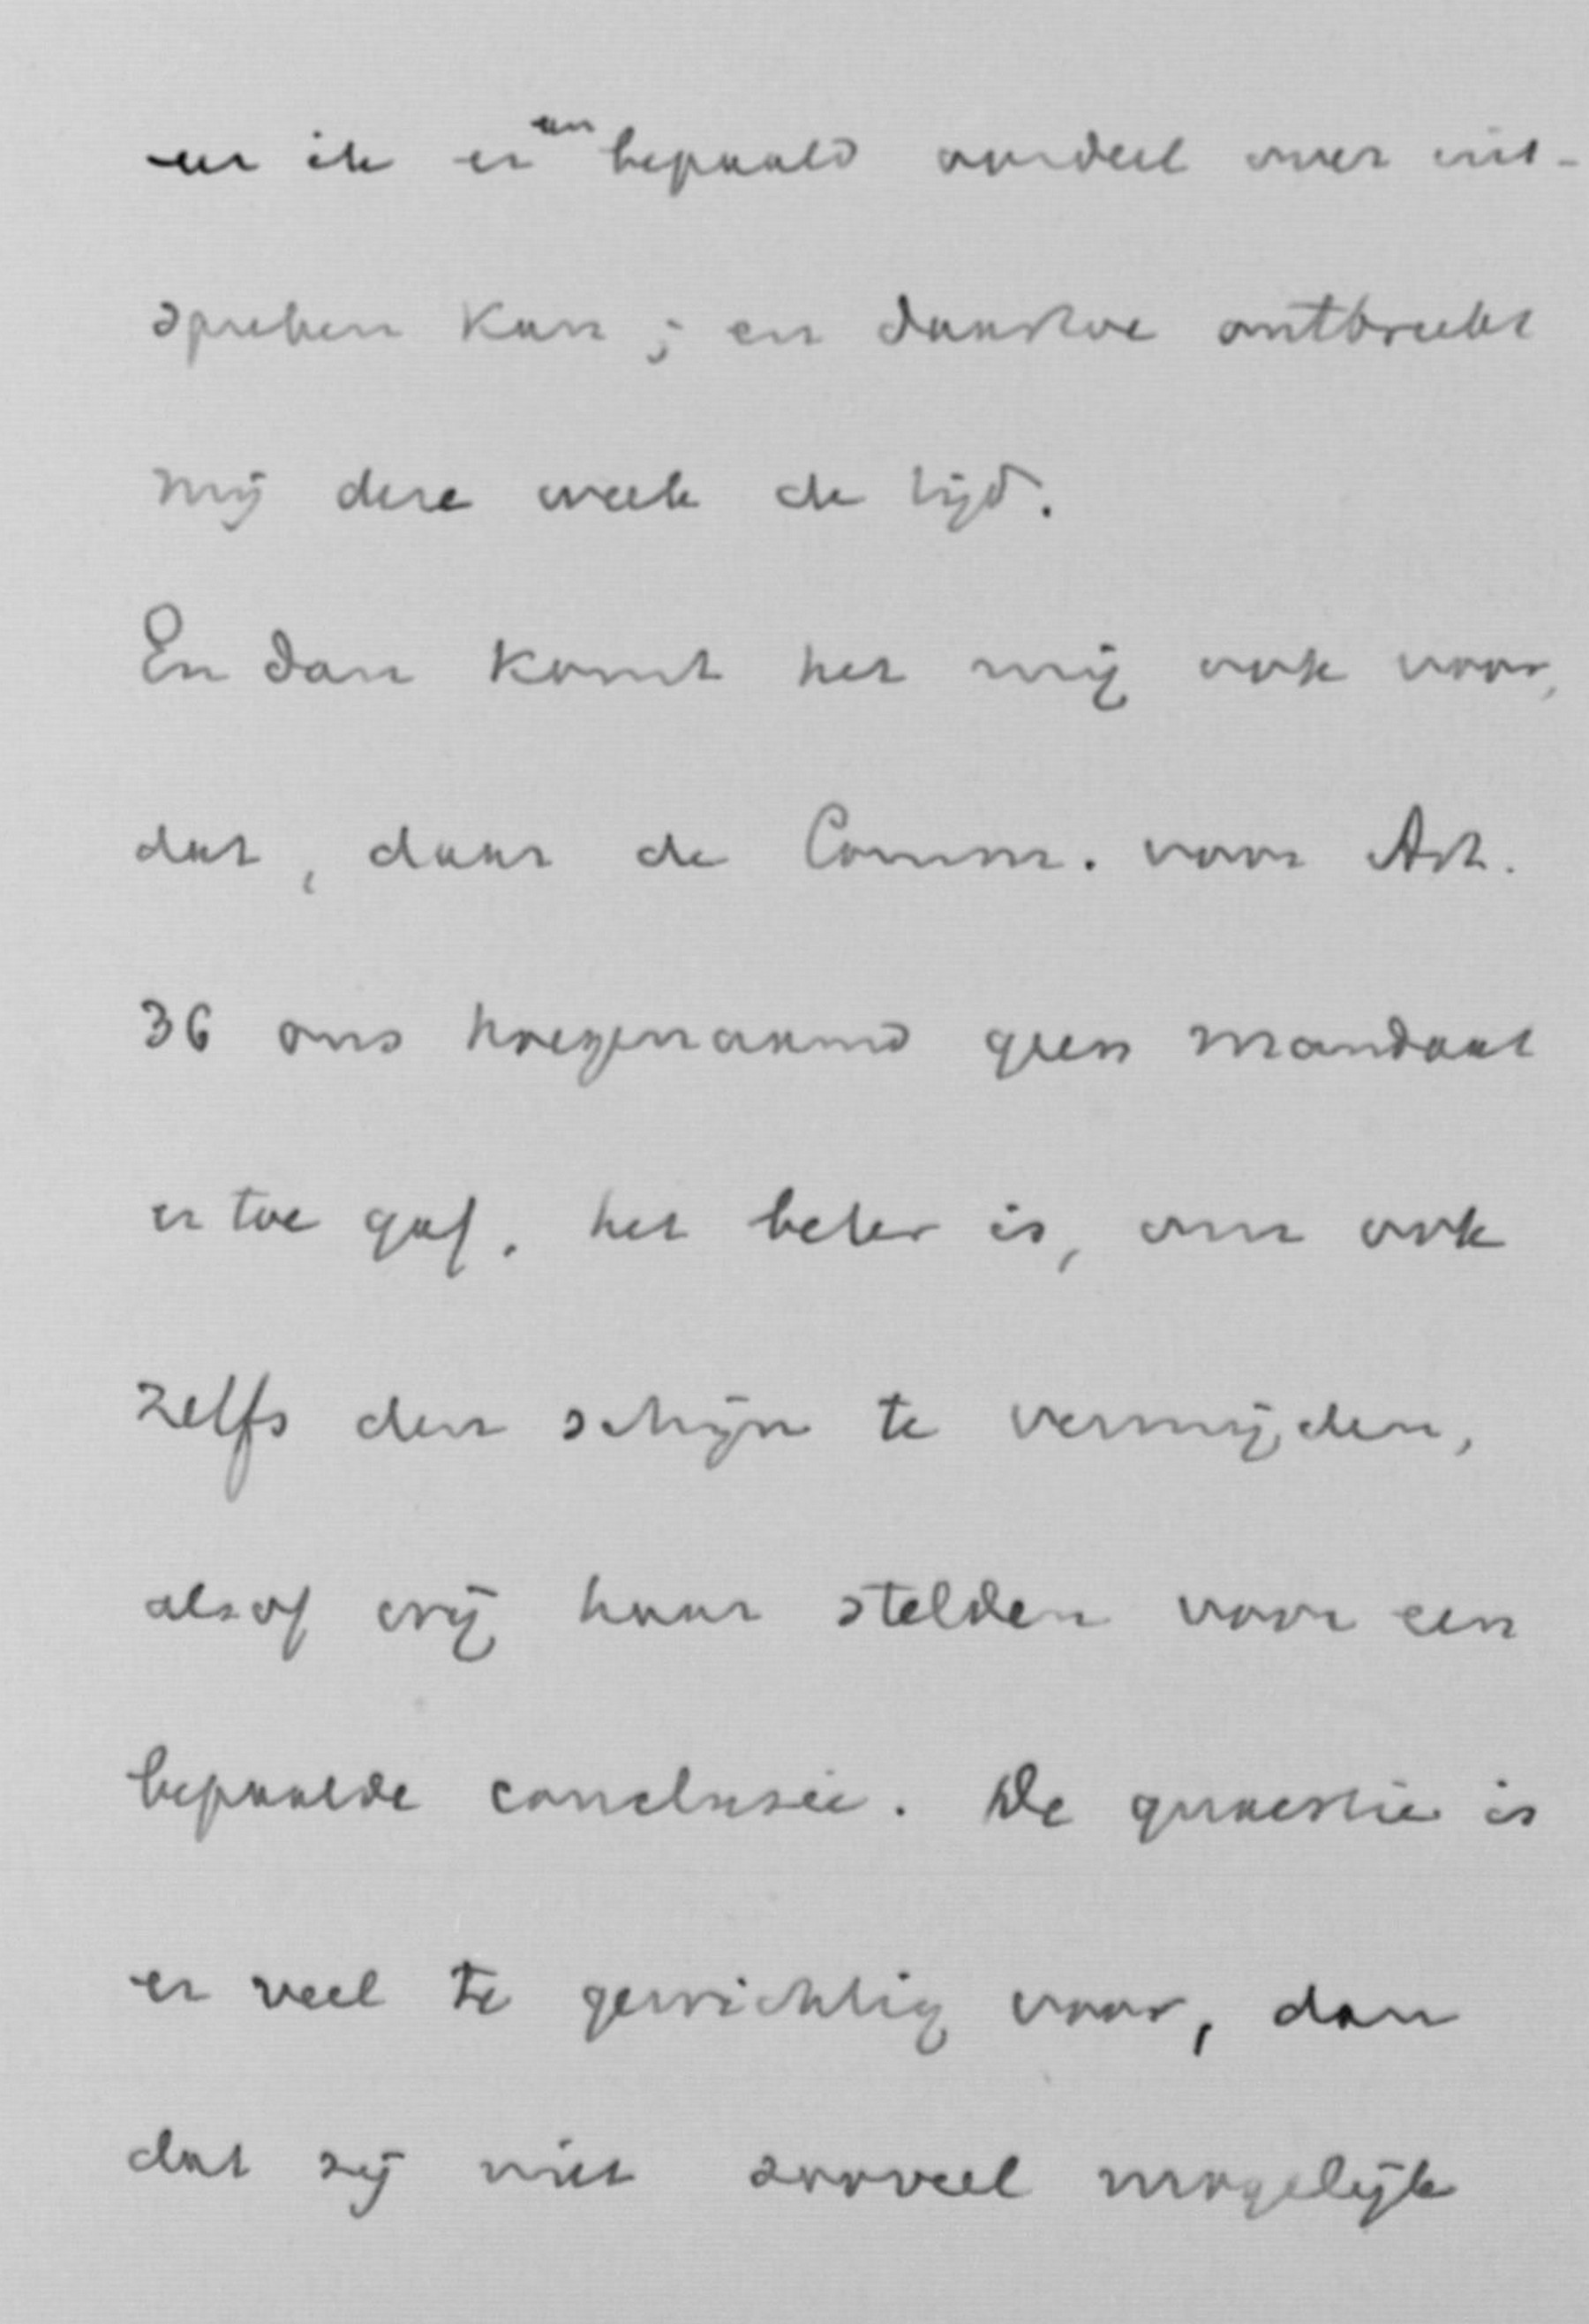 eer ik er een bepaald oordeel over uit-
spreken kan; en daartoe ontbreekt
mij deze week de tijd.
En dan komt het mij ook voor,
dat, daar de Comm. voor Art.
36 ons hoegenaamd geen mandaat
er toe gaf, het beter is, om ook
zelfs den schijn te vermijden,
alsof wij haar stelden voor een
bepaalde conclusie. De quaestie is
er veel te gewichtig voor, dan
dat zij niet zooveel mogelijk